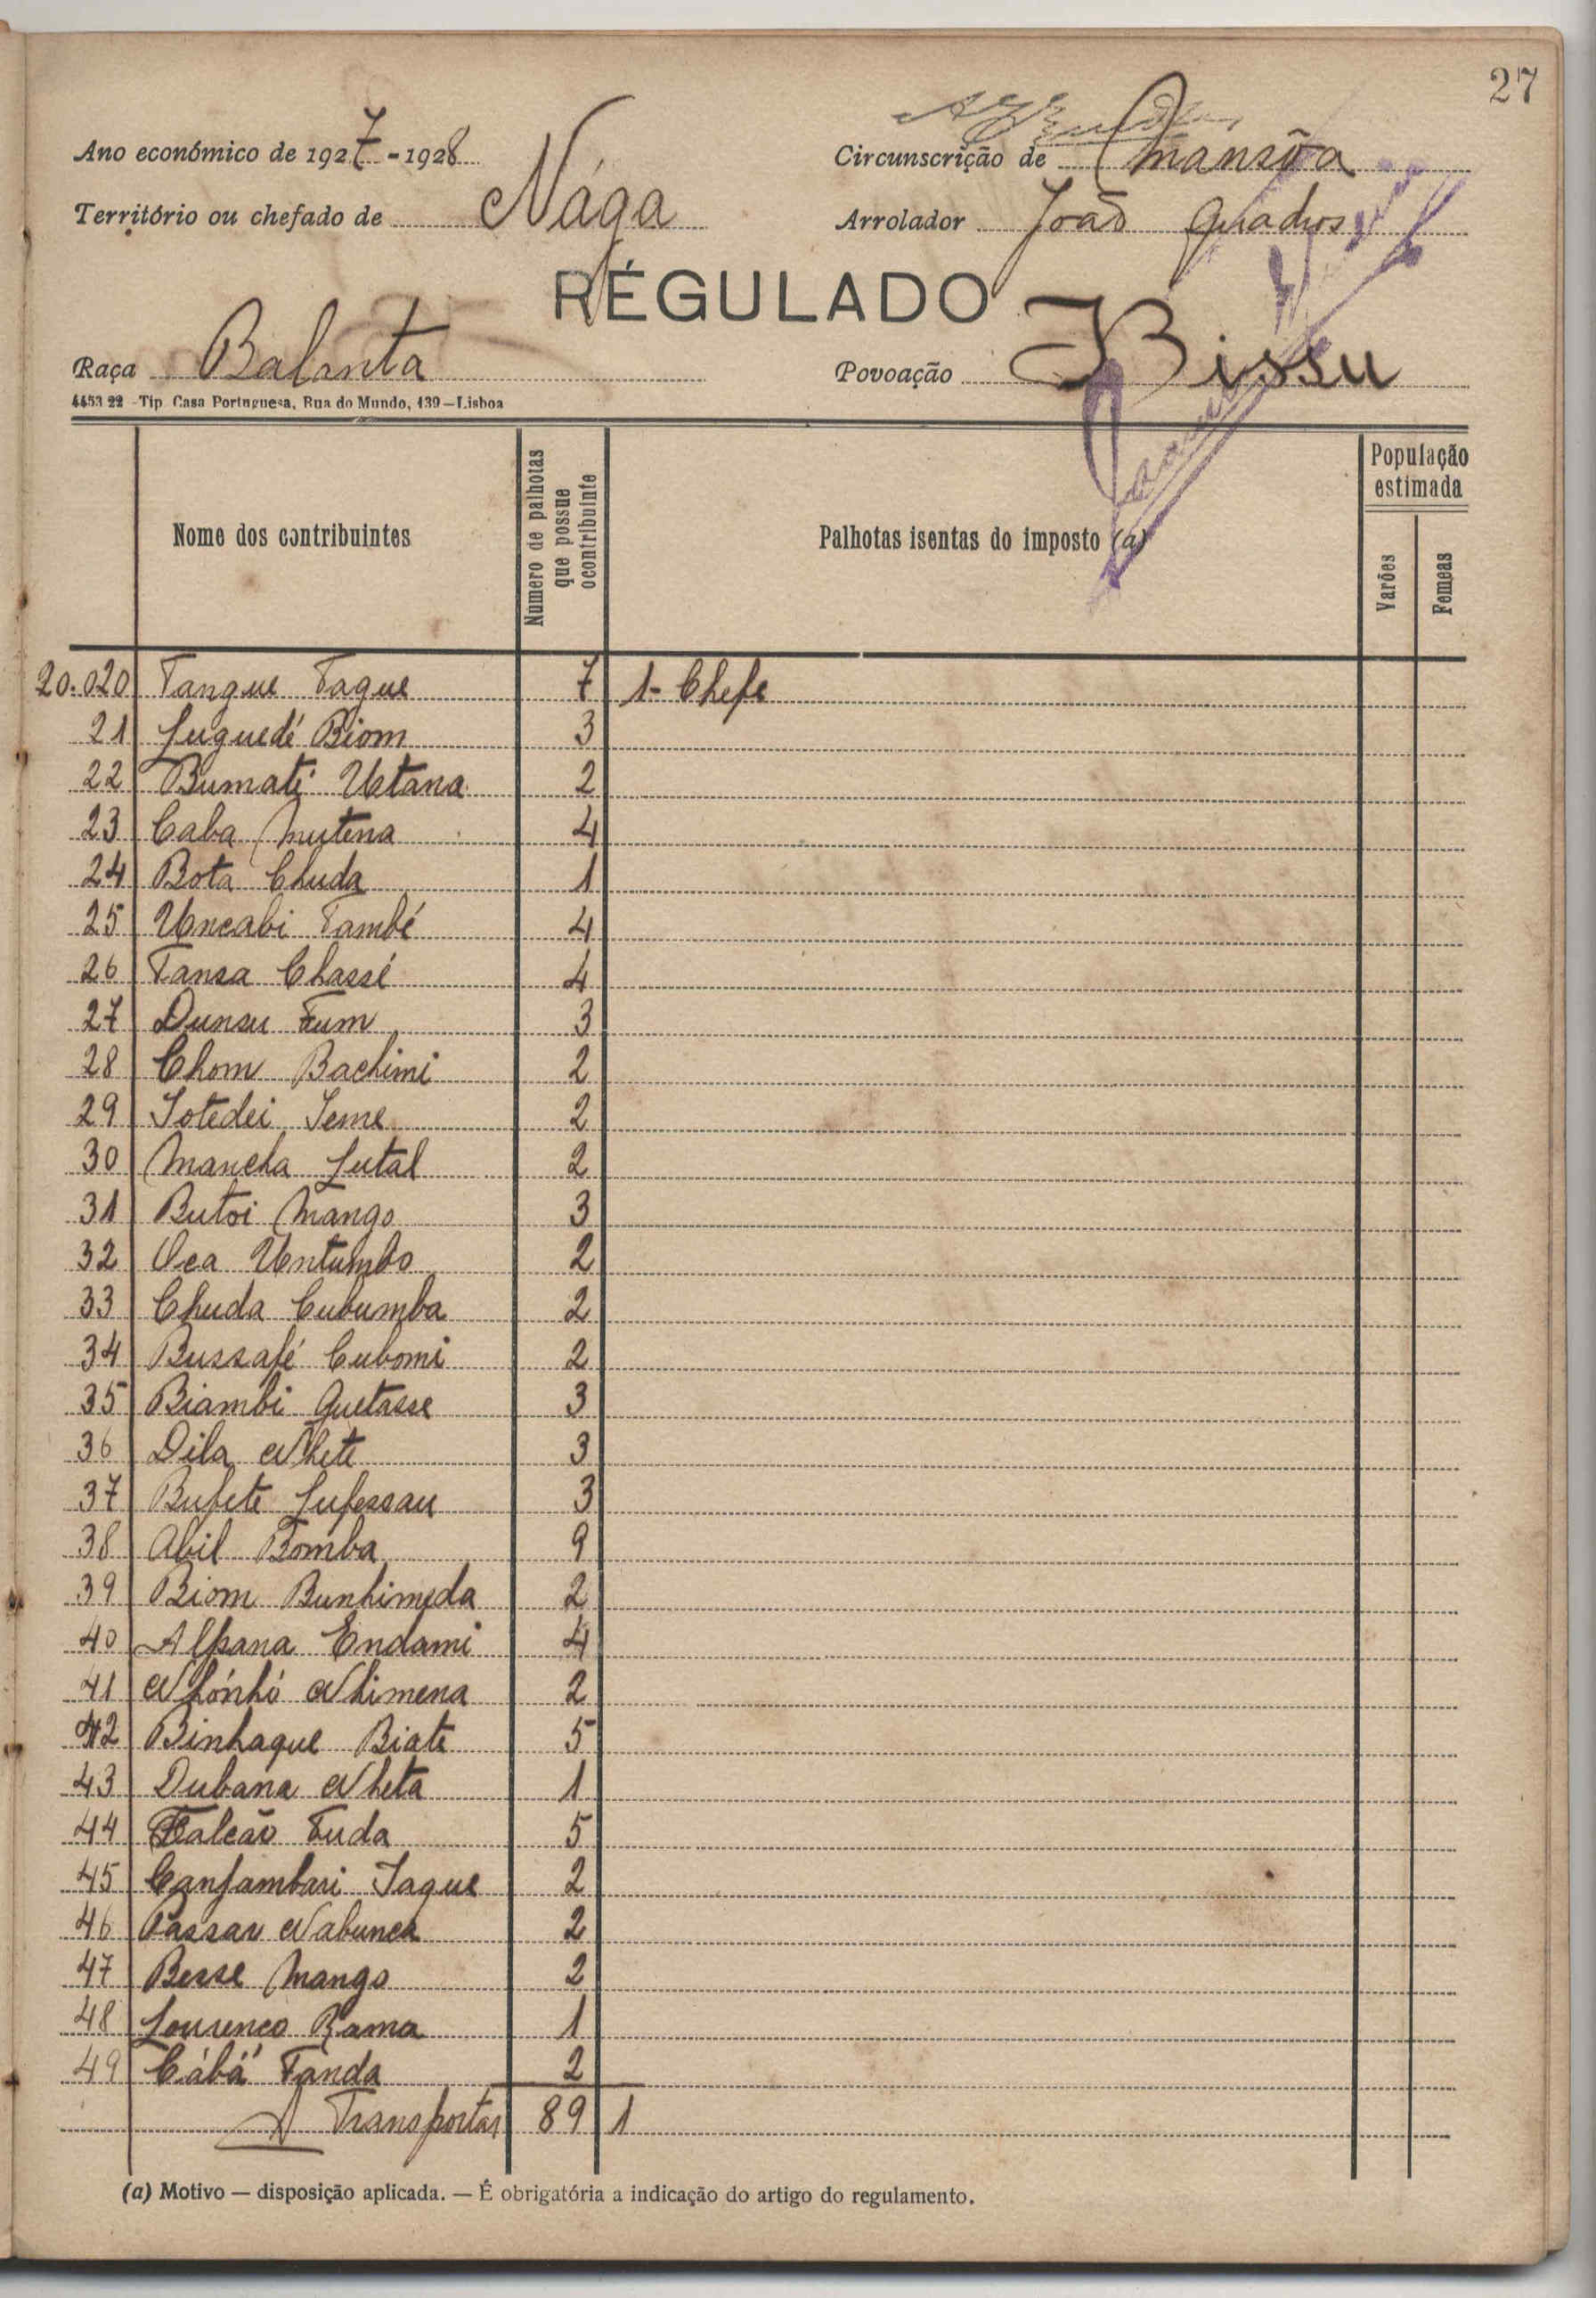 27
Ano económico de 1927-1928 Circunscrição de Mansôa
Território ou chefado de Nága Arrolador João Quadros
RÉGULADO
Raça Balanta Povoação Bissu
4453 22 - Tip Casa Portuguesa, Rua do Mundo, 139—Lisboa
Nome dos contribuintes
Número de palhotas que possue ocontribuinte
Palhotas isentas do imposto (a)
População estimada
Varões Femeas
20.020 Tangue Tague 7 1- Chefe
21 Luguedé Biom 3
22 Bumaté Untana 2
23 Caba Mutena 4
24 Bota Chuda 1
25 Uncabi També 4
26 Tansa Chassé 4
27 Dunsu Tum 3
28 Chom Bachimi 2
29 Iotedei Ieme 2
30 Mancha Lutal 2
31 Butoi Mango 3
32 Oca Untumbo 2
33 Chuda Cubumba 2
34 Bussafé Cubomi 2
35 Biambi Quetasse 3
36 Dila Nhete 3
37 Bufete Lufessau 3
38 Abil Bomba 9
39 Biom Bunhimeda 2
40 Alfana Endami 4
41 Nhónhó Nhimena 2
42 Binhaque Biate 5
43 Dubana Nheta 1
44 Falcão Tuda 5
45 Canfambari Iaque 2
46 Passar Nabunca 2
47 Besse Mango 2
48 Lourenco Bama 1
49 Cábá Tanda 2
A Transportar 89 1
(a) Motivo — disposição aplicada. — É obrigatória a indicação do artigo do regulamento.